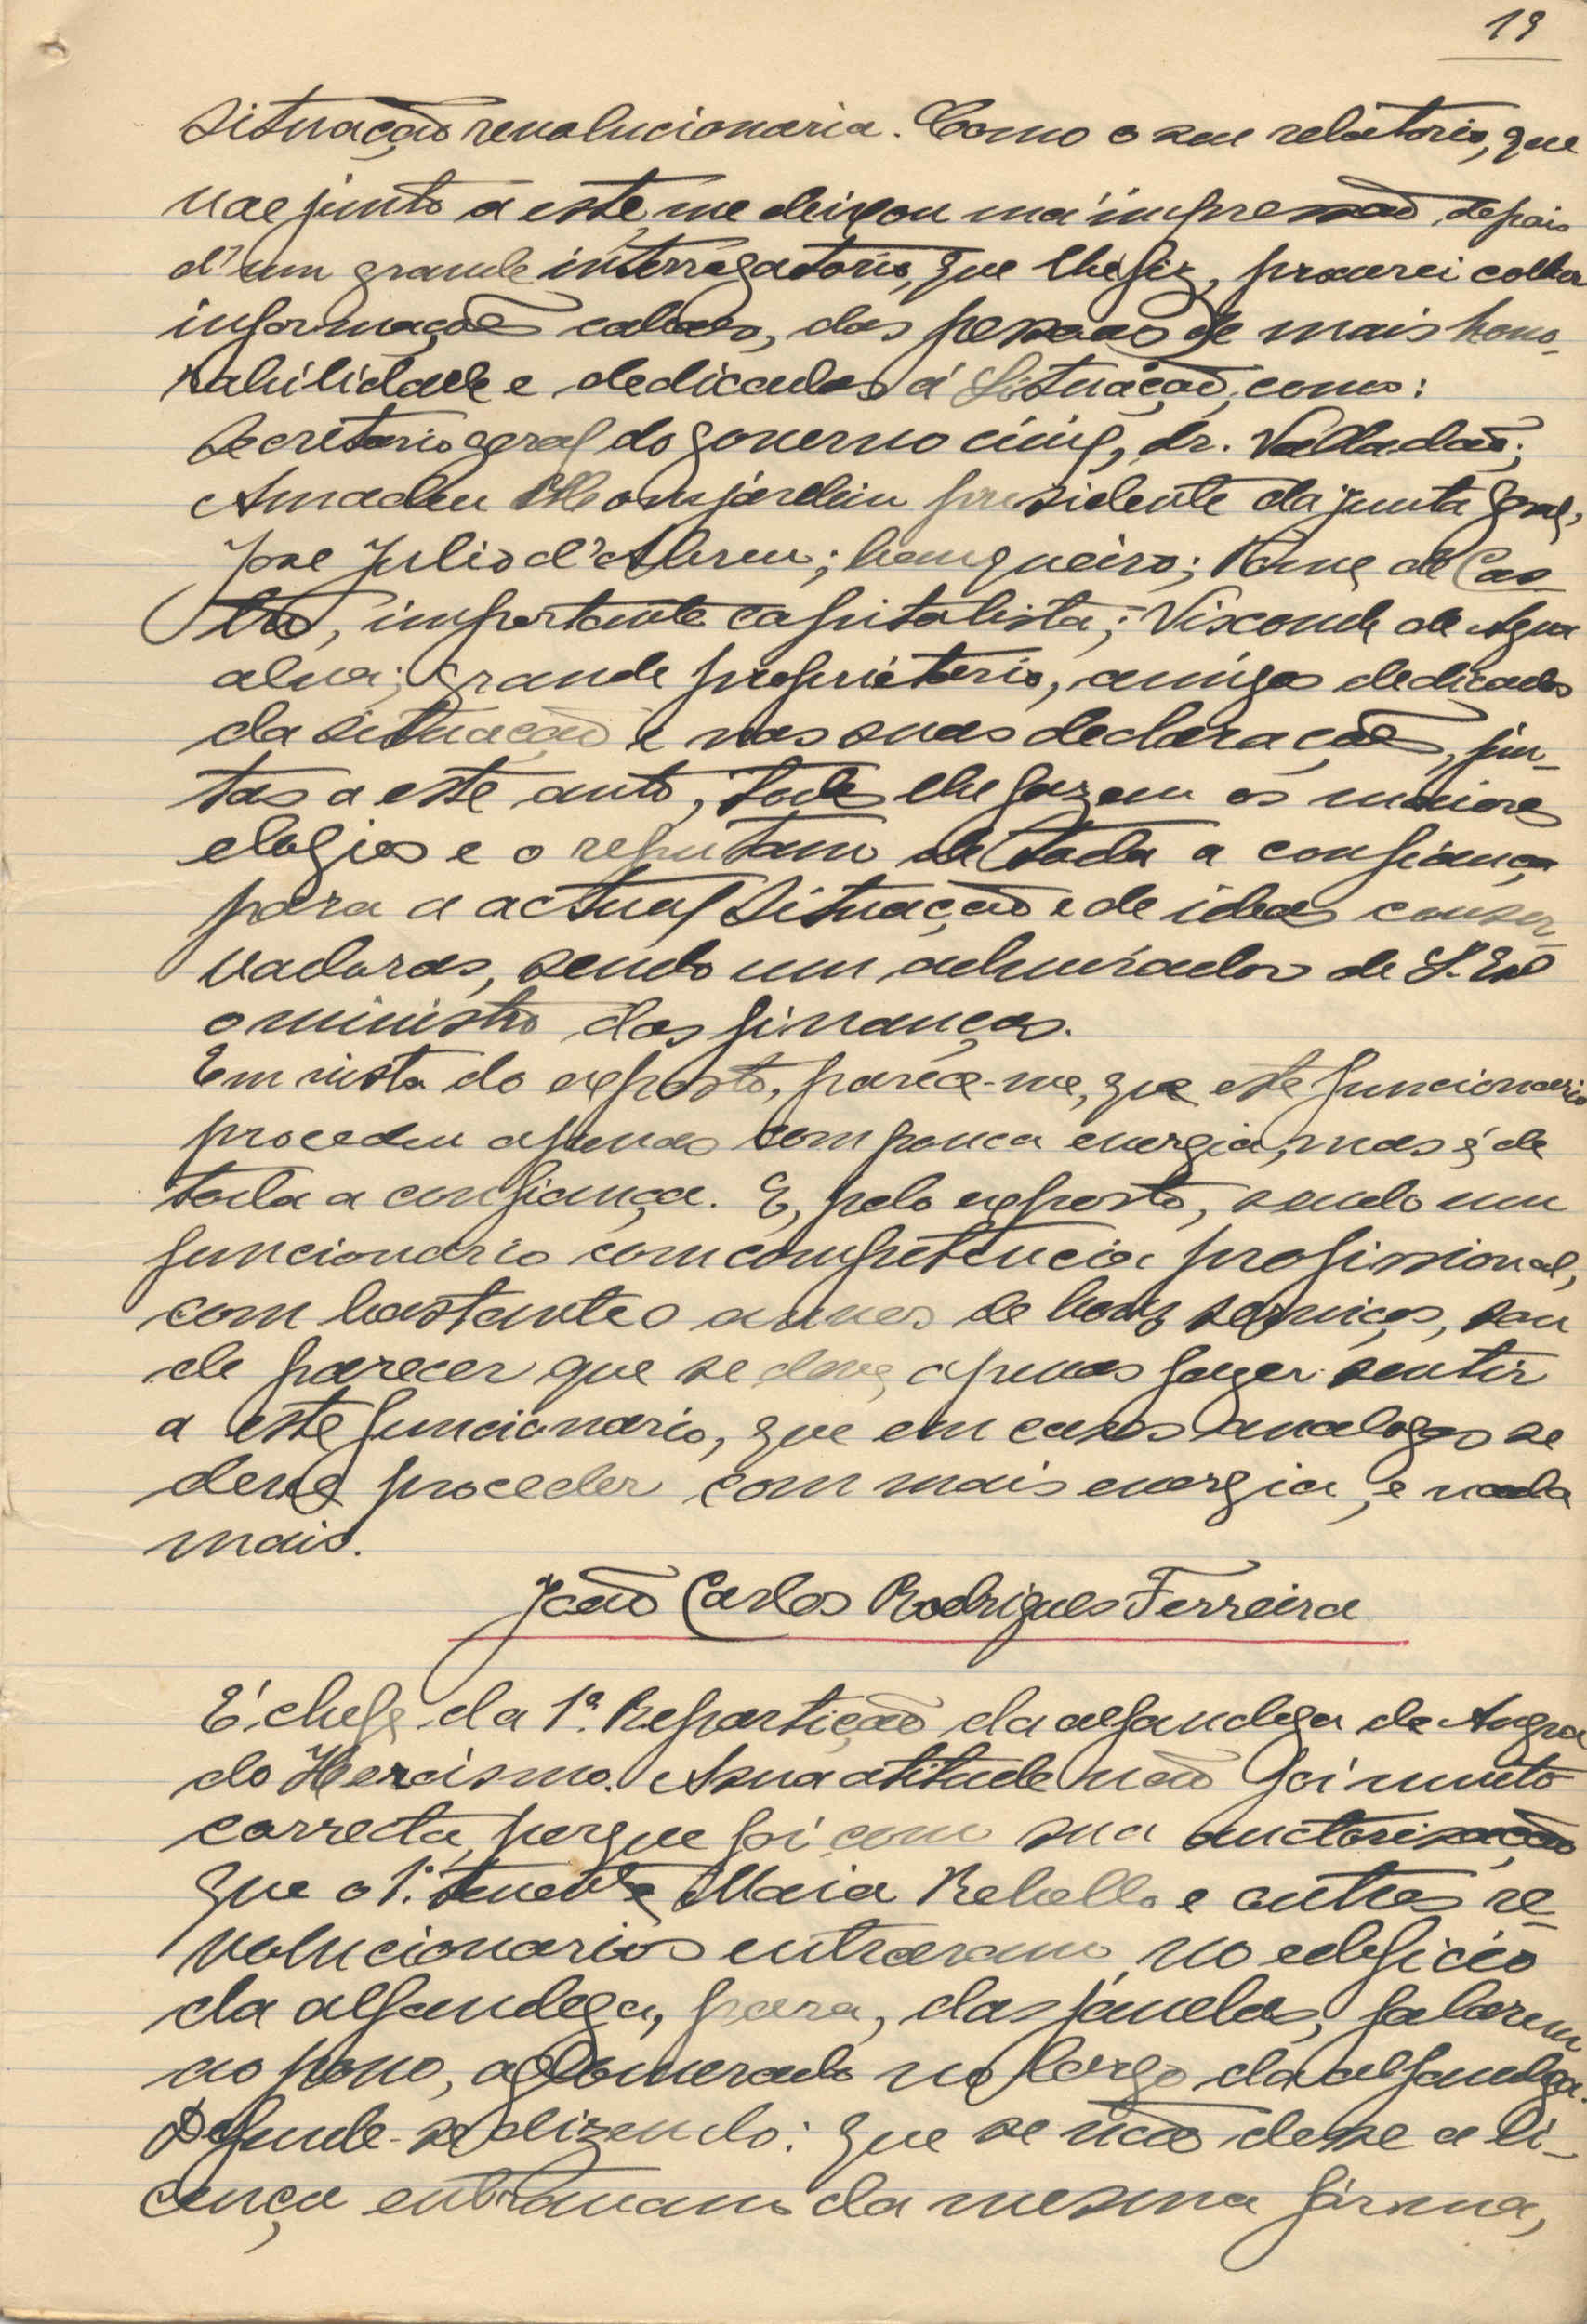 19
situação revolucionaria. Como o seu relatorio, que
vae junto a este, me deixou má impressão, depois
d'um grande interrogatorio, que lhe fiz, procurei colher
informações cabaes, das pessoas de mais hono-
rabilidade e dedicadas á Situação, como:
Secretario geral do governo civil, dr. Valladão;
Amadeu Monjardim presidente da junta geral,
José Julio d'Abreu; banqueiro; de Cas-
tro, importante capitalista; Visconde de Agua
alva; grande proprietario, amigos dedicados
da situação e nas suas declarações, jun-
tas a este auto, todos lhe fazem os maiores
elogios e o reputam de toda a confiança
para a actual Situação e de ideas conser-
vadoras, sendo um admirador de S. Exª
o ministro das finanças.
Em vista do exposto, parece-me, que este funcionario
procedeu apenas com pouca energia, mas é de
toda a confiança. E, pelo exposto, sendo um
funcionario com competencia profissional,
com bastantes annos de bons serviços, sou
de parecer que se deve apenas fazer sentir
a este funcionario, que em casos analogos se
deve proceder com mais energia, e nada
mais.
João Carlos Rodrigues Ferreira
É chefe da 1ª. Repartição da alfandega de Angra
do Heroismo. A sua atitude não foi muito
correcta, porque foi com sua auctorisação
que o 1º. tenente Maia Rebello e outros re-
volucionarios entraram no edificio
da alfandega, para, das janelas, falarem
ao povo, aglomerado no largo da alfandega.
Defende-se dizendo: que se não desse a li-
cença entravam da mesma fórma,